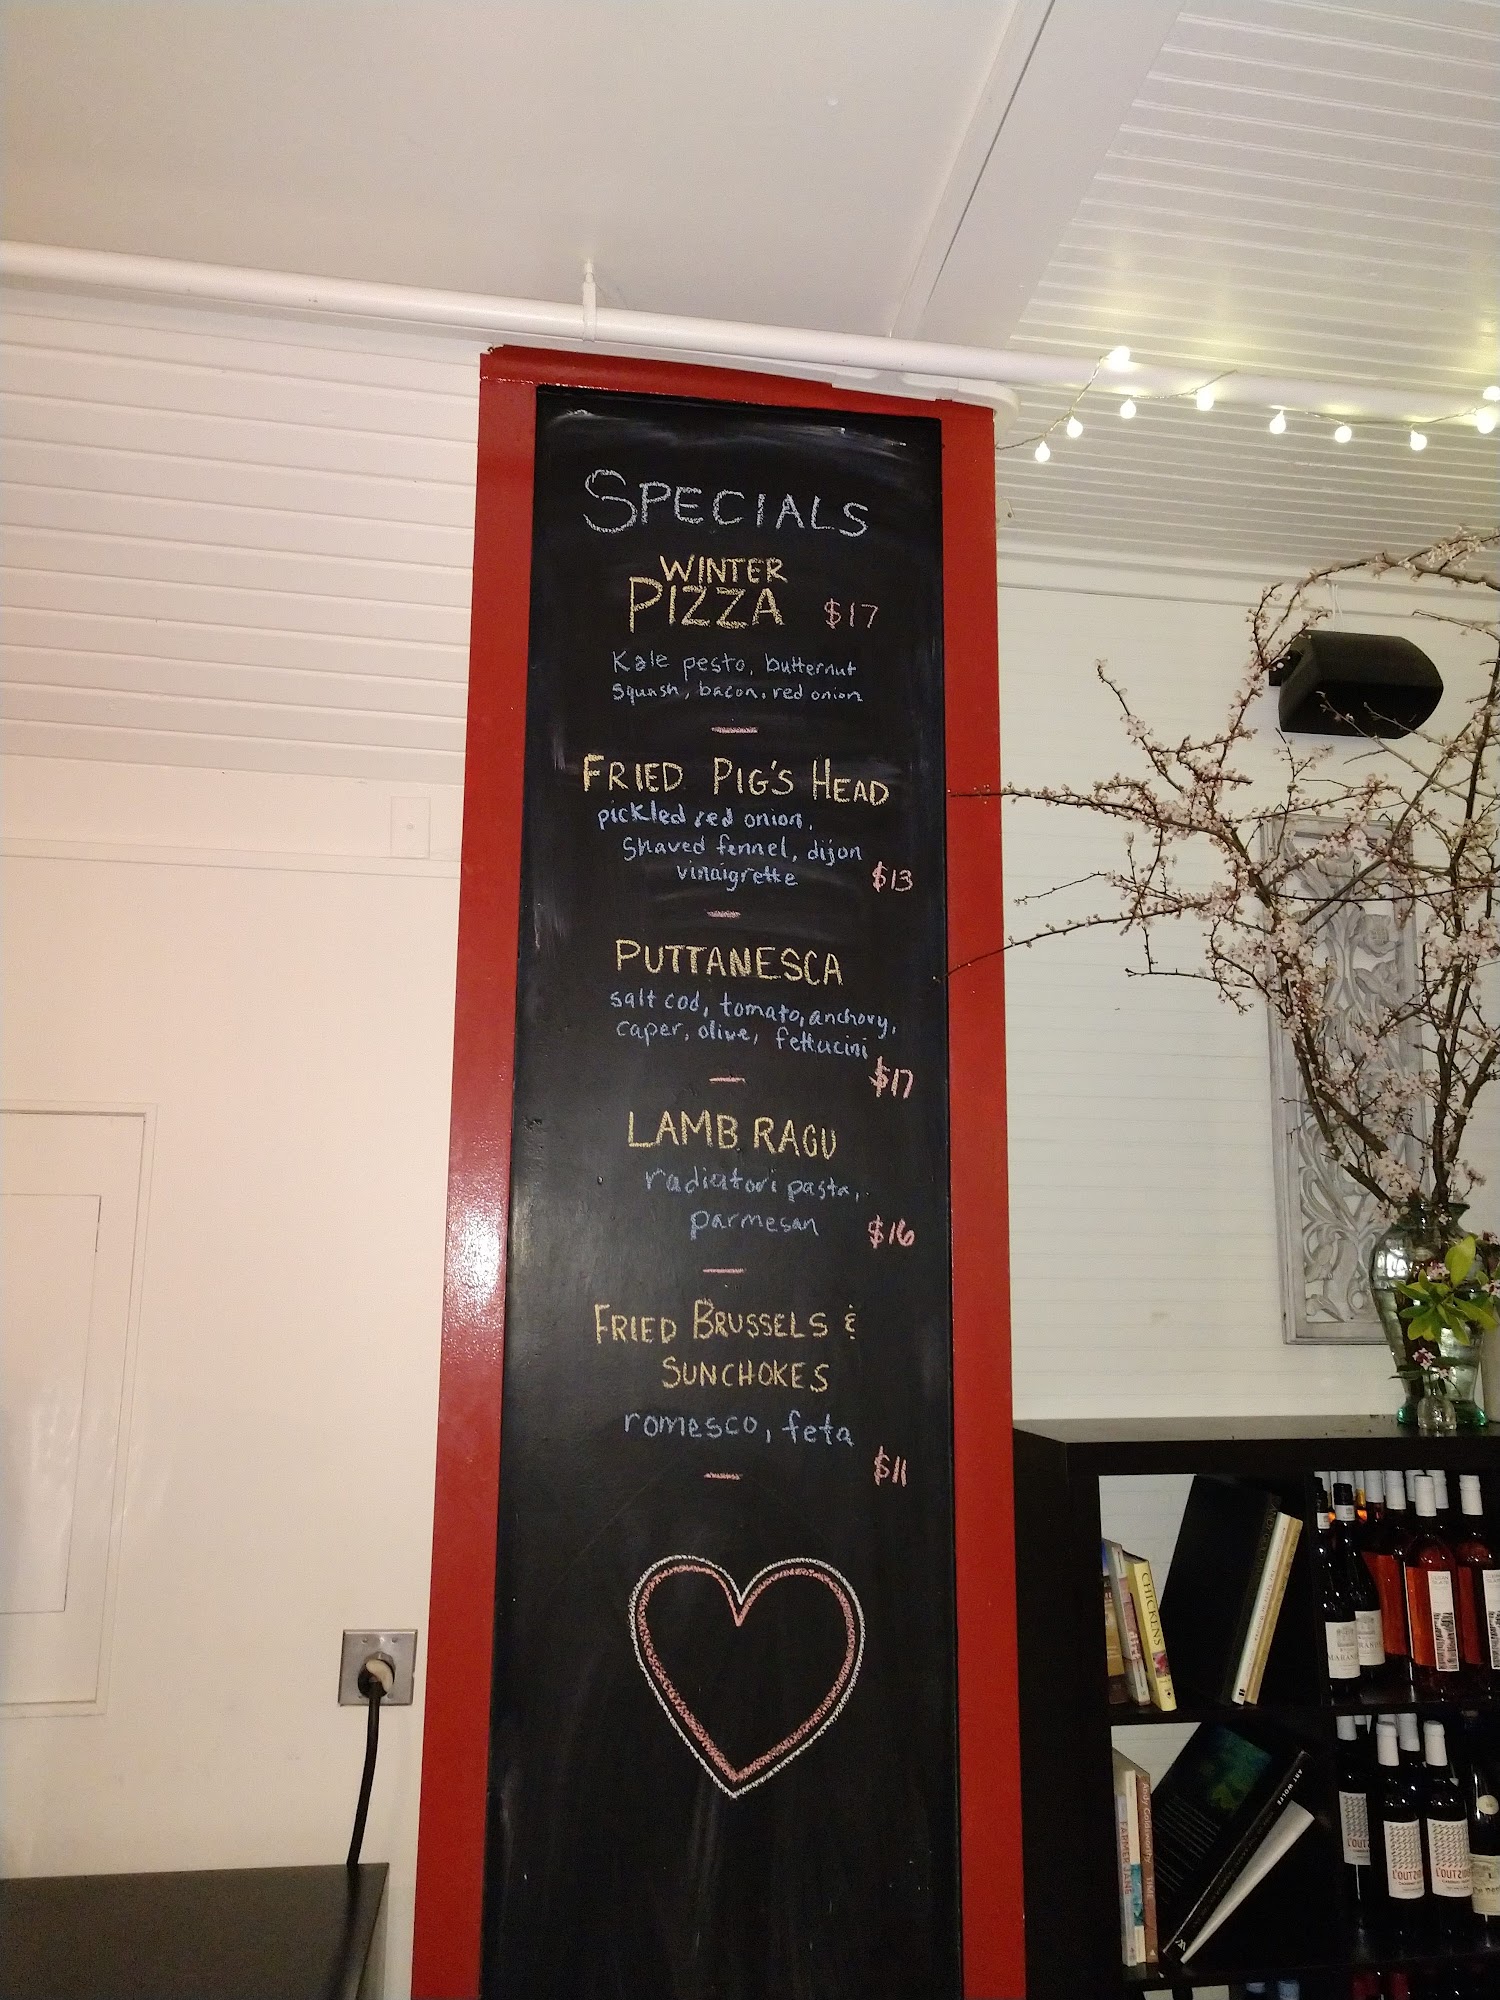 SPECIALS
WINTER
PIZZA $17
Kale pesto, butternut
squash, bacon, red onion
FRIED PIG'S HEAD
pickled red onion,
shaved fennel, dijon
vinaigrette $13
PUTTANESCA
salt cod, tomato, anchovy,
caper, olive, fettucini
$17
LAMB RAGU
radiatori pasta,
parmesan $16
FRIED BRUSSELS &
SUNCHOKES
romesco, feta
$11
CHICKENS
ART WOLFE
Andy Goldsworthy TIME
FARMER JANE